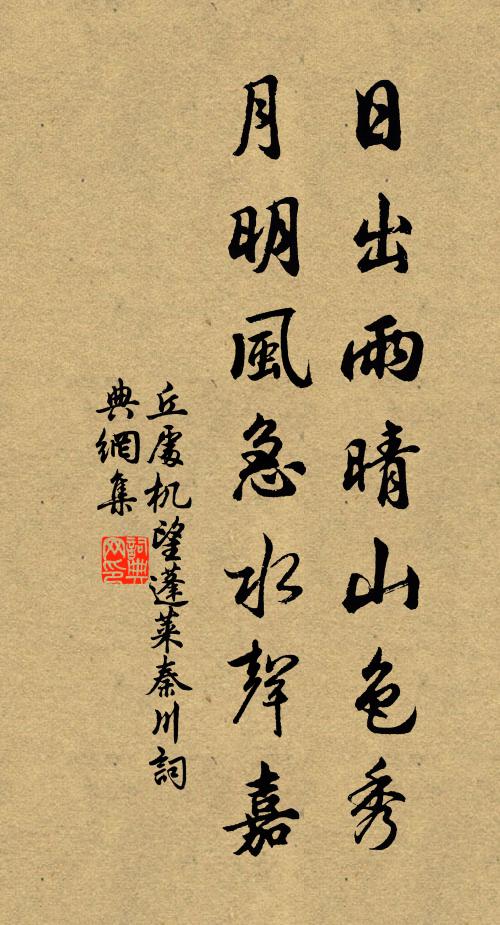 日出雨晴山色秀
月明風急水聲嘉
丘處机望蓬萊秦川詞
典網集
詞典
网印